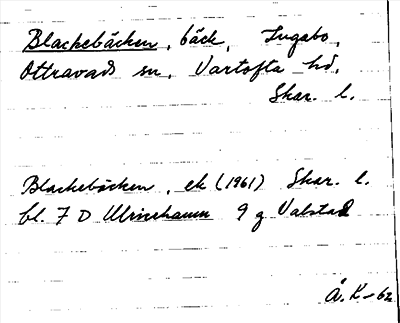 Blackebäcken, bäck, Ingabo,
Ottravads sn, Vartofta hd,
Skar. l.
Blackebäcken, ek (1961) Skar. l.
bl. 7 D Ulricehamn 9 g Valstad
Å. K-62